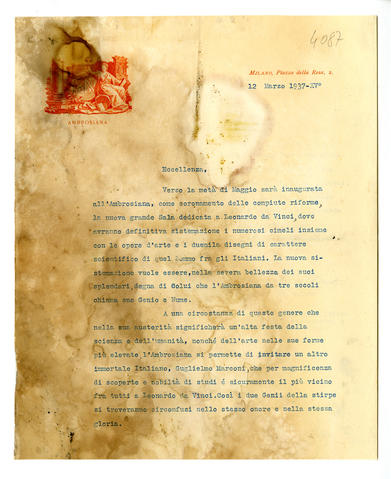 4087
MILANO, Piazza della Rosa, 2.
12 Marzo 1937-XV°
AMBROSIANA
Eccellenza,
Verso la metà di Maggio sarà inaugurata
all'Ambrosiana, come coronamento delle compiute riforme,
la nuova grande Sala dedicata a Leonardo da Vinci, dove
avranno definitiva sistemazione i numerosi cimeli insieme
con le opere d'arte e i duemila disegni di carattere
scientifico di quel Sommo fra gli Italiani. La nuova si-
stemazione vuole essere, nella severa bellezza dei suoi
splendori, degna di Colui che l'Ambrosiana da tre secoli
chiama suo Genio e Nume.
A una circostanza di questo genere che
nella sua austerità significherà un'alta festa della
scienza e dell'umanità, nonché dell'arte nelle sue forme
più elevate l'Ambrosiana si permette di invitare un altro
immortale Italiano, Guglielmo Marconi, che per magnificenza
di scoperte e nobiltà di studi é sicuramente il più vicino
fra tutti a Leonardo da Vinci. Così i due Genii della stirpe
si troveranno circonfusi nello stesso onore e nella stessa
gloria.